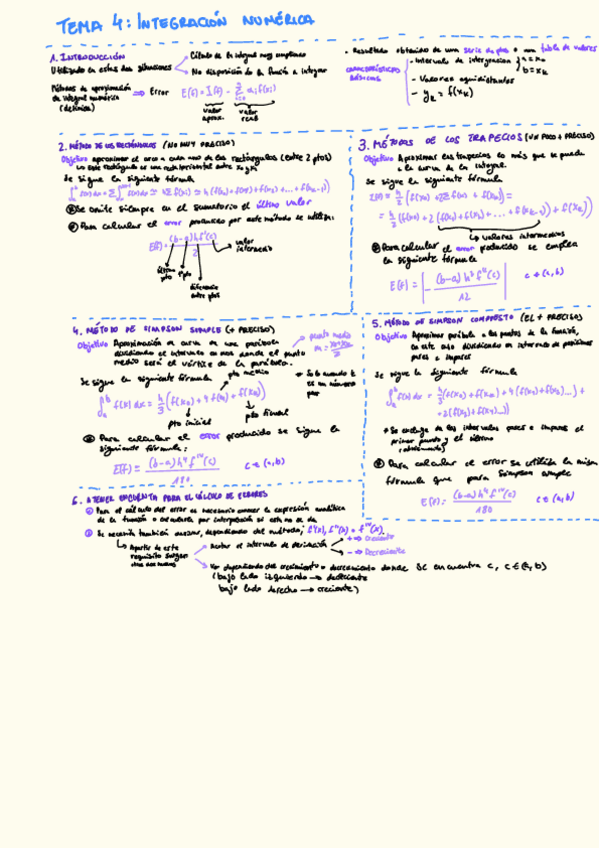 TEMA 4: INTEGRACIÓN NUMÉRICA
1. INTRODUCCIÓN
Utilizado en estas dos situaciones
Cálculo de la integral muy complicado
No disposición de la función a integrar
Métodos de aproximación
de integral numérica
(definida)
⇒ Error
valor aprox.
valor real
• Resultado obtenido de una serie de ptos o una tabla de valores
CARACTERÍSTICAS BÁSICAS
- Intervalo de integración
a = x₀
b = xₖ
- Valores equidistantes
- yₖ = f(xₖ)
2. MÉTODO DE LOS RECTÁNGULOS (NO MUY PRECISO)
Objetivo aproximar el área a cada uno de los rectángulos (entre 2 ptos)
Se sigue la siguiente fórmula
Se omite siempre en el sumatorio el último valor
Para calcular el error producido por este método se utiliza:
E(f) = (b-a) h f'(c) / 2
valor intermedio
último pto
1º pto
diferencia entre ptos
3. MÉTODOS DE LOS TRAPECIOS (UN POCO + PRECISO)
Objetivo Aproximar los trapecios lo más que se pueda
a la curva de la integral
Se sigue la siguiente fórmula
valores intermedios
Para calcular el error producido se emplea
la siguiente fórmula
E(f) = |- (b-a) h² f''(c) / 12| c ∈ (a,b)
4. MÉTODO DE SIMPSON SIMPLE (+ PRECISO)
Objetivo Aproximación a curva de una parábola
dividiendo el intervalo en dos donde el punto
medio será el vértice de la parábola.
punto medio
Solo cuando k
es un número
par
Se sigue la siguiente fórmula
pto medio
∫ₐᵇ f(x) dx = h/3 (f(x₀) + 4 f(x₁) + f(x₂))
pto inicial
pto final
Para calcular el error producido se sigue la
siguiente fórmula:
E(f) = (b-a) h⁴ f^IV(c) / 180 c ∈ (a,b)
5. MÉTODO DE SIMPSON COMPUESTO (EL + PRECISO)
Objetivo Aproximar parábola a los puntos de la función,
en este caso dividiendo en intervalo de posiciones
pares e impares
Se sigue la siguiente fórmula
∫ₐᵇ f(x) dx = h/3 (f(x₀) + f(xₖ) + 4 (f(x₁) + f(x₃)...) +
+ 2 (f(x₂) + f(x₄)...))
* Se excluye de los intervalos pares o impares el
primer punto y el último
Para calcular el error se utiliza la misma
fórmula que para Simpson simple
E(f) = (b-a) h⁴ f^IV(c) / 180 c ∈ (a,b)
6. A TENER EN CUENTA PARA EL CÁLCULO DE ERRORES
Para el cálculo del error es necesario conocer la expresión analítica
de la función o calcularla por interpolación si esta no se da
Se necesita también derivar, dependiendo del método, f'(x), f''(x) o f^IV(x)
A partir de este
requisito surgen
otros dos nuevos
Acotar el intervalo de derivación
+ ⇒ Creciente
- ⇒ Decreciente
Ver dependiendo del crecimiento o decrecimiento donde se encuentra c, c ∈ (a, b)
(bajo lado izquierdo → decreciente
bajo lado derecho → creciente)